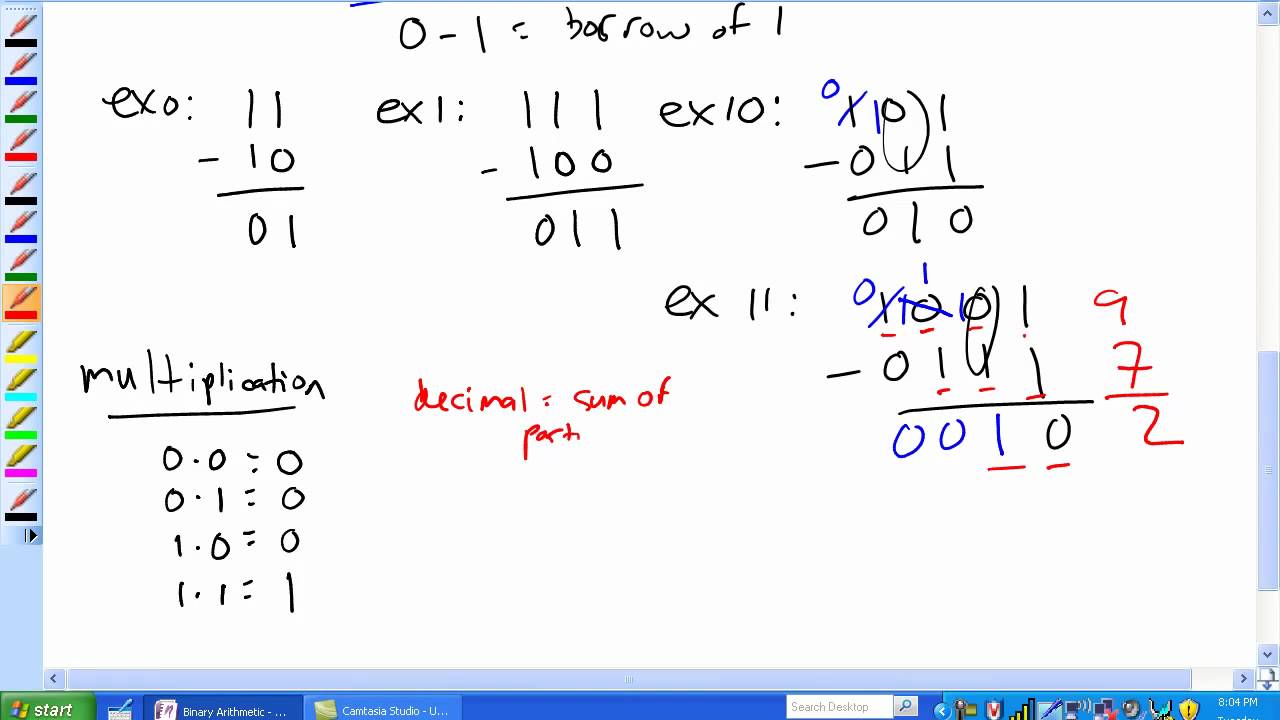 0 - 1 = borrow of 1
ex0: 11
- 10
01
ex1: 111
- 100
011
ex10: 0 1 1 0 1
- 0 1 1
0 1 0
ex 11: 0 1 1 1 0 1 0 1
- 0 1 1 1
0 0 1 0
9
7
2
multiplication
0 · 0 = 0
0 · 1 = 0
1 · 0 = 0
1 · 1 = 1
decimal = sum of
part
start
Binary Arithmetic - ...
Camtasia Studio - U...
Search Desktop
8:04 PM
Tuesday